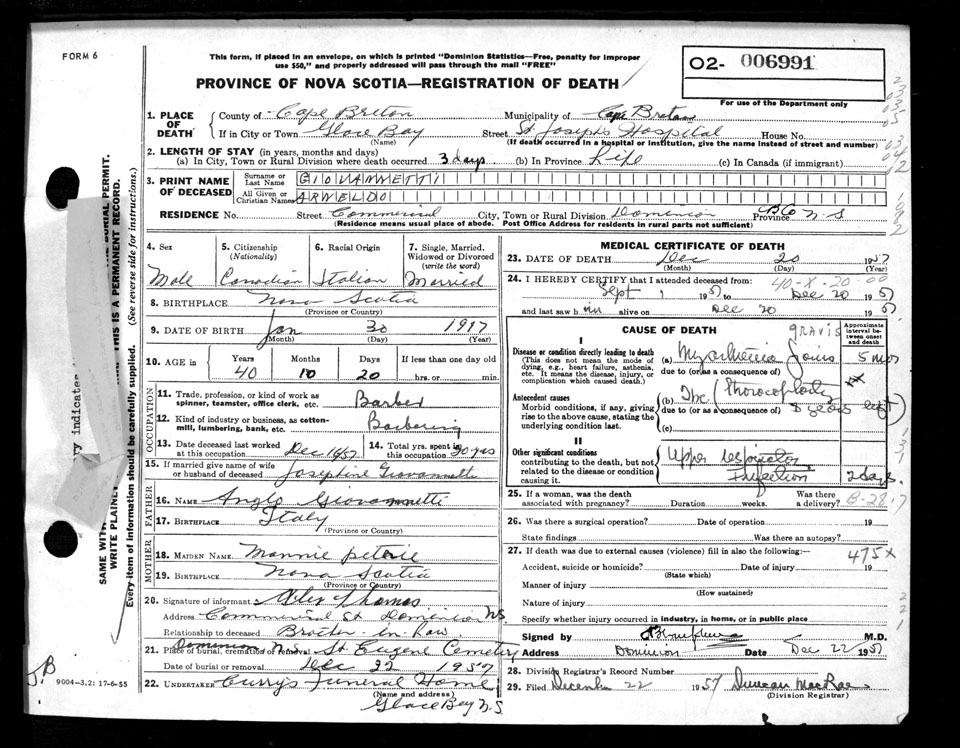 FORM 6
This form, if placed in an envelope, on which is printed "Dominion Statistics—Free, penalty for improper
use $50," and properly addressed will pass through the mail "FREE"
PROVINCE OF NOVA SCOTIA—REGISTRATION OF DEATH
O2- 006991
For use of the Department only
1. PLACE OF DEATH
County of Cape Breton Municipality of Cape Breton
If in City or Town Glace Bay Street St Josephs Hospital House No.
(Name) (If death occurred in a hospital or institution, give the name instead of street and number)
2. LENGTH OF STAY (in years, months and days)
(a) In City, Town or Rural Division where death occurred 3 days (b) In Province Life (c) In Canada (if immigrant)
3. PRINT NAME OF DECEASED
Surname or Last Name GIOVANNETTI
All Given or Christian Names ARNELDO
RESIDENCE No. Street Commercial City, Town or Rural Division Dominion Province CB Co N.S
(Residence means usual place of abode. Post Office Address for residents in rural parts not sufficient)
4. Sex
Male
5. Citizenship (Nationality)
Canadian
6. Racial Origin
Italian
7. Single, Married, Widowed or Divorced (write the word)
Married
8. BIRTHPLACE Nova Scotia
(Province or Country)
9. DATE OF BIRTH Jan 30 1917
(Month) (Day) (Year)
10. AGE in Years Months Days If less than one day old
40 10 20 hrs. or min.
OCCUPATION
11. Trade, profession, or kind of work as
spinner, teamster, office clerk, etc. Barber
12. Kind of industry or business, as cotton-
mill, lumbering, bank, etc. Barbering
13. Date deceased last worked at this occupation Dec 1957
14. Total yrs. spent in this occupation 20 yrs
15. If married give name of wife
or husband of deceased Josephine Giovannetti
FATHER
16. NAME Anglo Giovannetti
17. BIRTHPLACE Italy
(Province or Country)
MOTHER
18. MAIDEN NAME Mannie Petrie
19. BIRTHPLACE Nova Scotia
(Province or Country)
20. Signature of informant Alex Thomas
Address Commercial St Dominion N.S.
Relationship to deceased Brother-In-Law
21. Place of burial, cremation or removal Dominion N.S. St Eugene Cemetery
Date of burial or removal Dec 22 1957
22. UNDERTAKER Curry's Funeral Home
(Name and address)
Glace Bay N.S.
MEDICAL CERTIFICATE OF DEATH
23. DATE OF DEATH Dec 20 1957
(Month) (Day) (Year)
40-X-20-00
24. I HEREBY CERTIFY that I attended deceased from:
Sept 1957 to Dec 20 1957
and last saw him alive on Dec 20 1957
CAUSE OF DEATH
Approximate interval between onset and death
I
Disease or condition directly leading to death
(This does not mean the mode of
dying, e.g., heart failure, asthenia,
etc. It means the disease, injury, or
complication which caused death.)
GRAVIS
(a) Myasthenia Gravis 5 mos
due to (or as a consequence of)
Antecedent causes
Morbid conditions, if any, giving
rise to the above cause, stating the
underlying condition last.
(b) Tbc (Thoracoplasty
due to (or as a consequence of) 8 years left)
(c)
II
Other significant conditions
contributing to the death, but not
related to the disease or condition
causing it.
Upper respiratory
Infection 2 days.
25. If a woman, was the death
associated with pregnancy? Duration weeks. Was there a delivery?
26. Was there a surgical operation? Date of operation 19
State findings Was there an autopsy?
27. If death was due to external causes (violence) fill in also the following:— 475 X
Accident, suicide or homicide? Date of injury 19
(State which)
Manner of injury
(How sustained)
Nature of injury
Specify whether injury occurred in industry, in home, or in public place
Signed by M.D.
Address Dominion Date Dec 22 1957
28. Division Registrar's Record Number
29. Filed December 22 1957 Duncan MacRae
(Division Registrar)
SAME WITH
WRITE PLAINLY
THIS IS A PERMANENT RECORD.
BURIAL PERMIT.
Every item of information should be carefully supplied.
(See reverse side for instructions.)
ry indicates
9004-3.2: 17-6-55